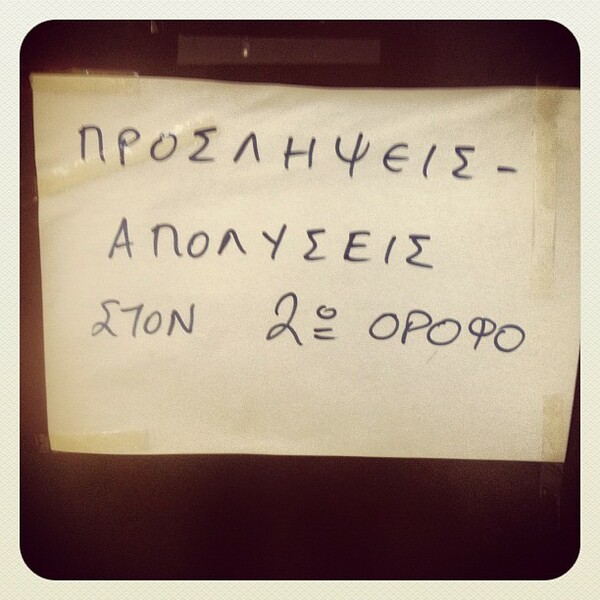 ΠΡΟΣΛΗΨΕΙΣ -
ΑΠΟΛΥΣΕΙΣ
ΣΤΟΝ 2º ΟΡΟΦΟ